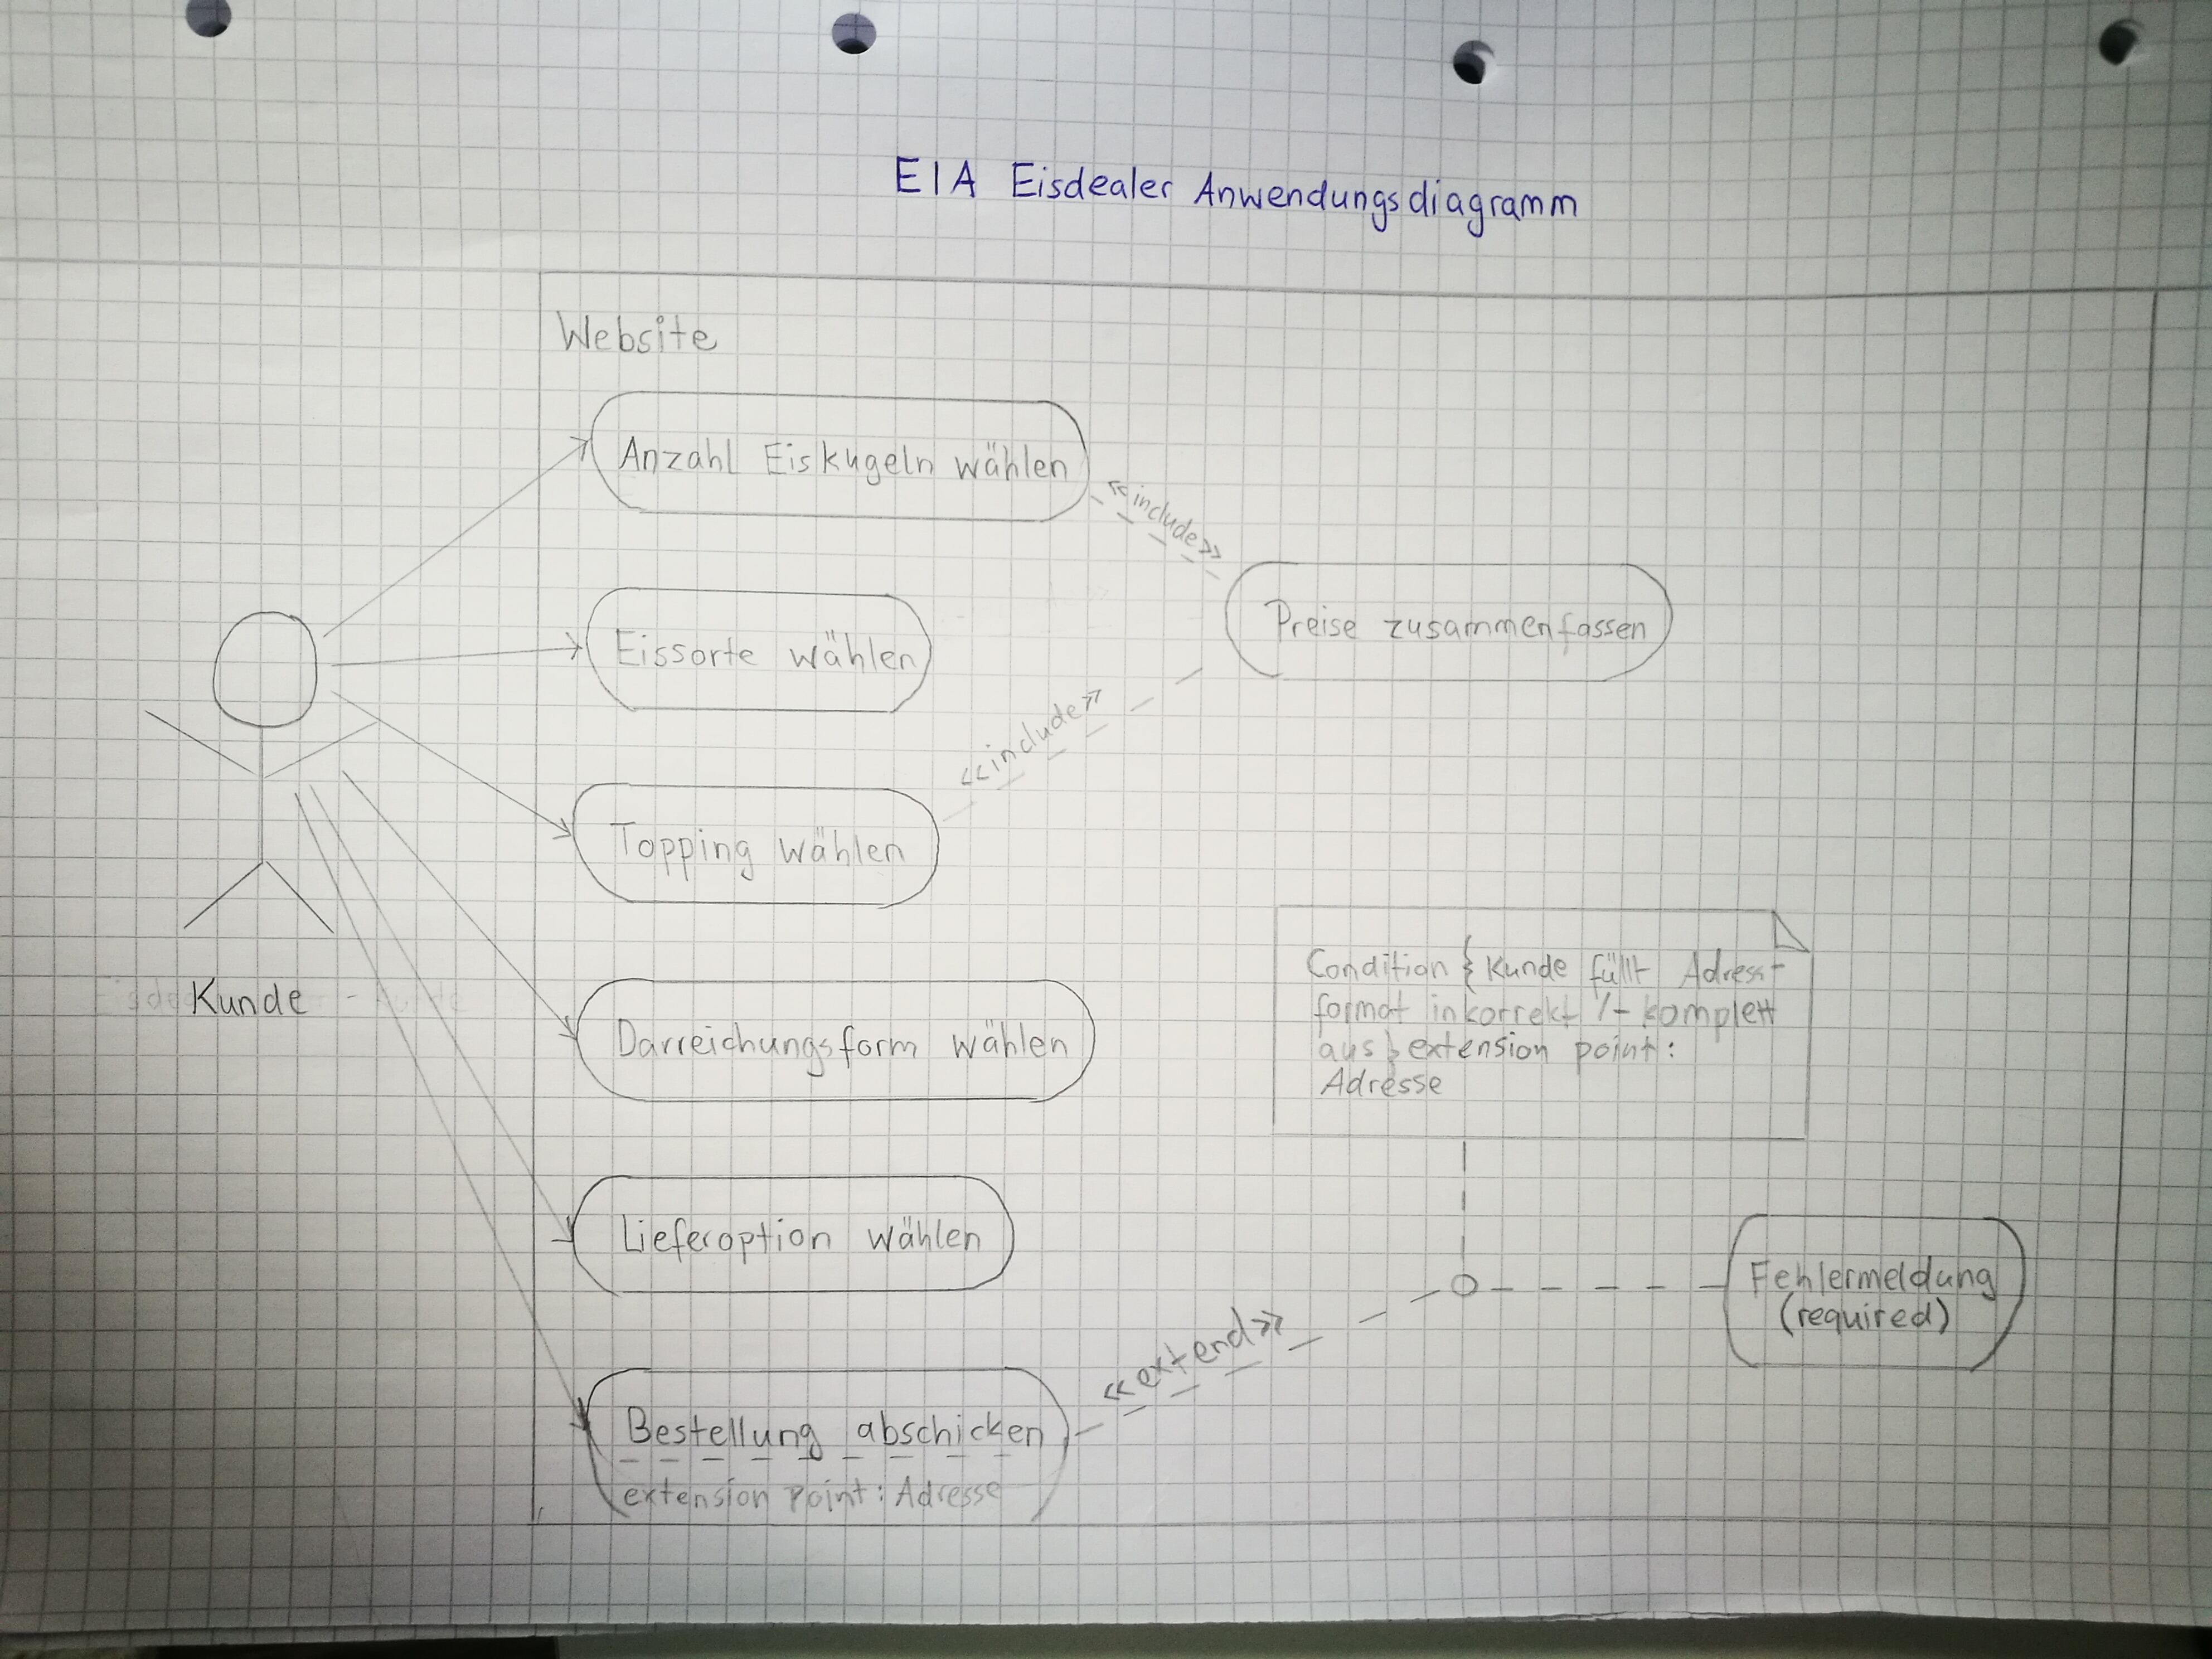 EIA Eisdealer Anwendungsdiagramm
Website
Anzahl Eiskugeln wählen
<<include>>
Preise zusammenfassen
Eissorte wählen
<<include>>
Topping wählen
Kunde
Condition { Kunde füllt Adress-
format inkorrekt /- komplett
aus} extension point:
Adresse
Darreichungsform wählen
Lieferoption wählen
Fehlermeldung
(required)
<<extend>>
Bestellung abschicken
extension point: Adresse